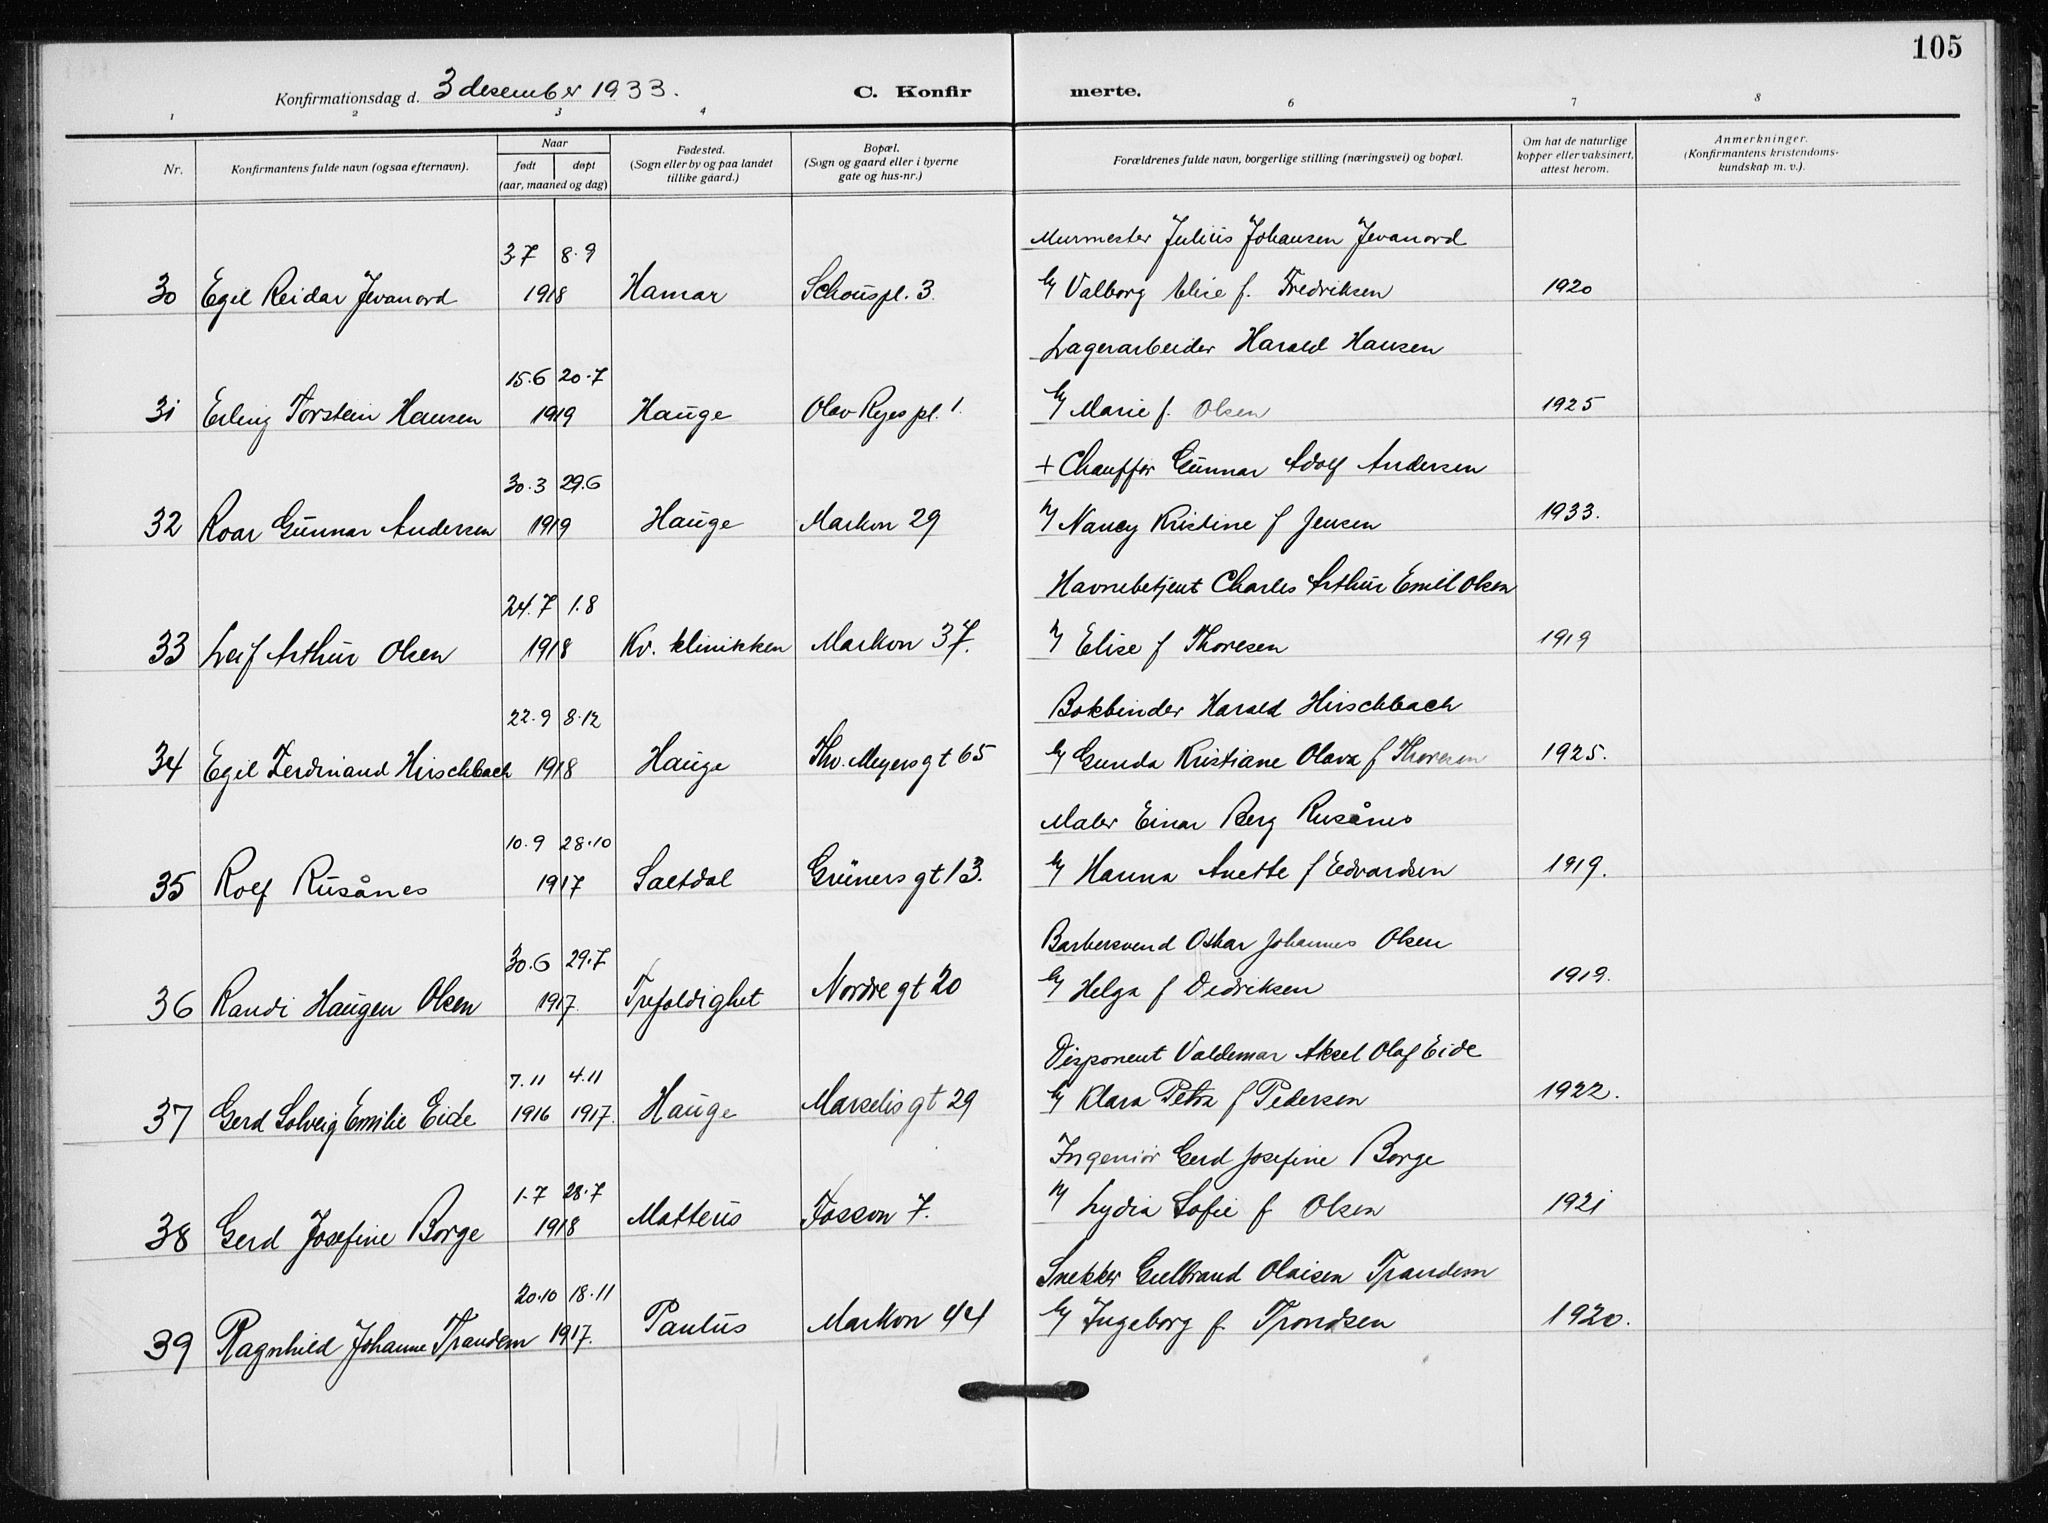 105
Konfirmationsdag d. 3 desember 1933. C. Konfirmerte.
1 2 3 4 6 7 8
Nr. Konfirmantens fulde navn (ogsaa efternavn). Naar født døpt (aar, maaned og dag) Fødested. (Sogn eller by og paa landet tillike gaard.) Bopæl. (Sogn og gaard eller i byerne gate og hus-nr.) Forældrenes fulde navn, borgerlige stilling (næringsvei) og bopæl. Om hat de naturlige kopper eller vaksinert, attest herom. Anmerkninger. (Konfirmantens kristendomskundskap m. v.).
3.7 8.9 Murmester Julius Johansen Jevanord
30 Egil Reidar Jevanord 1918 Hamar Schouspl. 3. Valborg Elise f. Fredriksen 1920
Lagerarbeider Harald Hansen
15.6 20.7
31 Erling Torstein Hansen 1919 Hauge Olav Ryes pl. 1. Marie f. Olsen 1925
+ Chauffør Gunnar Adolf Andersen
30.3 29.6
32 Roar Gunnar Andersen 1919 Hauge Markvn 29 Nancy Kristine f Jensen 1933.
Havnebetjent Charles Arthur Emil Olsen
24.7 1.8
33 Leif Arthur Olsen 1918 Kv. klinikken Markvn 37. Elise f Thoresen 1919
22.9 8.12 Bokbinder Harald Hirschbach
34 Egil Ferdinand Hirschbach 1918 Hauge Thv. Meyers gt 65 Gunda Kristiane Olava f Thoresen 1925.
Maler Einar Berg Rusånes
10.9 28.10
35 Rolf Rusånes 1917 Saltdal Grüners gt 13. Hanna Anette f Edvardsen 1919.
30.6 29.7 Barbersvend Oskar Johannes Olsen
36 Randi Haugen Olsen 1917. Trefoldighet Nordre gt 20 Helga f Dedriksen 1919.
Disponent Valdemar Aksel Olaf Eide
7.11 4.11
37 Gerd Solveig Emilie Eide 1916 1917. Hauge Marselis gt 29 Klara Petra f Pedersen 1922.
Ingeniør Gerd Josefine Borge
1.7 28.7
38 Gerd Josefine Borge 1918 Matteus Fossvn 7. Lydia Sofie f Olsen 1921
Snekker Gulbrand Olaisen Trandem
20.10 18.11
39 Ragnhild Johanne Trandem 1917. Paulus Markvn 44 Ingeborg f. Trondsen 1920.